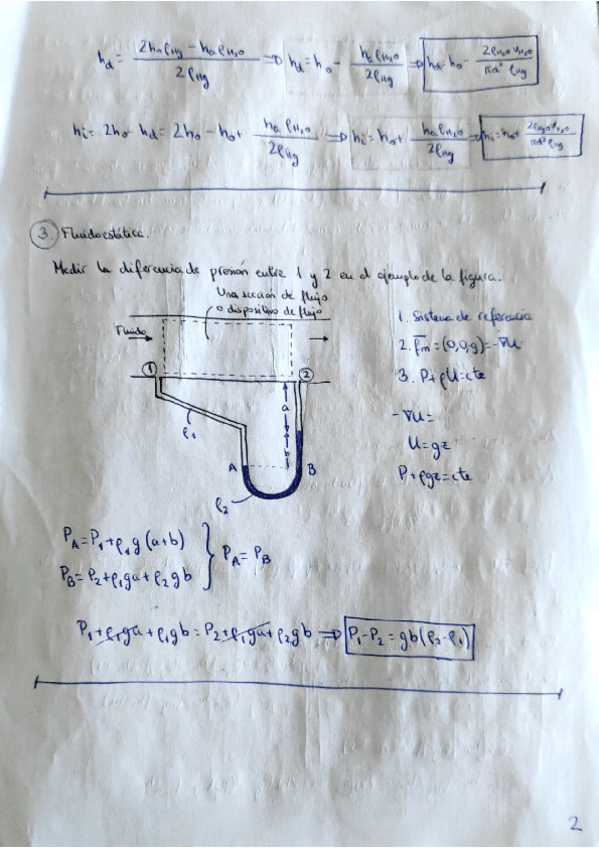 hd = (2h₀ρHg − haρH₂O) / 2ρHg ⇒ hd = h₀ − haρH₂O / 2ρHg ⇒ hd = h₀ − 2ρH₂O VH₂O / πd² ρHg
hi = 2h₀ − hd = 2h₀ − h₀ + haρH₂O / 2ρHg ⇒ hi = h₀ + haρH₂O / 2ρHg ⇒ hi = h₀ + 2ρH₂O VH₂O / πd² ρHg
3. Fluidoestática.
Medir la diferencia de presión entre 1 y 2 en el ejemplo de la figura.
Una sección de flujo
o dispositivo de flujo
Fluido
1
2
a
b
ρ₁
A
B
ρ₂
1. Sistema de referencia
2. f̄m = (0,0,g) = −∇U
3. P + ρU = cte
−∇U =
U = gz
P + ρgz = cte
PA = P₁ + ρ₁g (a+b)
PB = P₂ + ρ₁ga + ρ₂gb
} PA = PB
P₁ + ρ₁ga + ρ₁gb = P₂ + ρ₁ga + ρ₂gb ⇒ P₁ − P₂ = gb(ρ₂ − ρ₁)
2